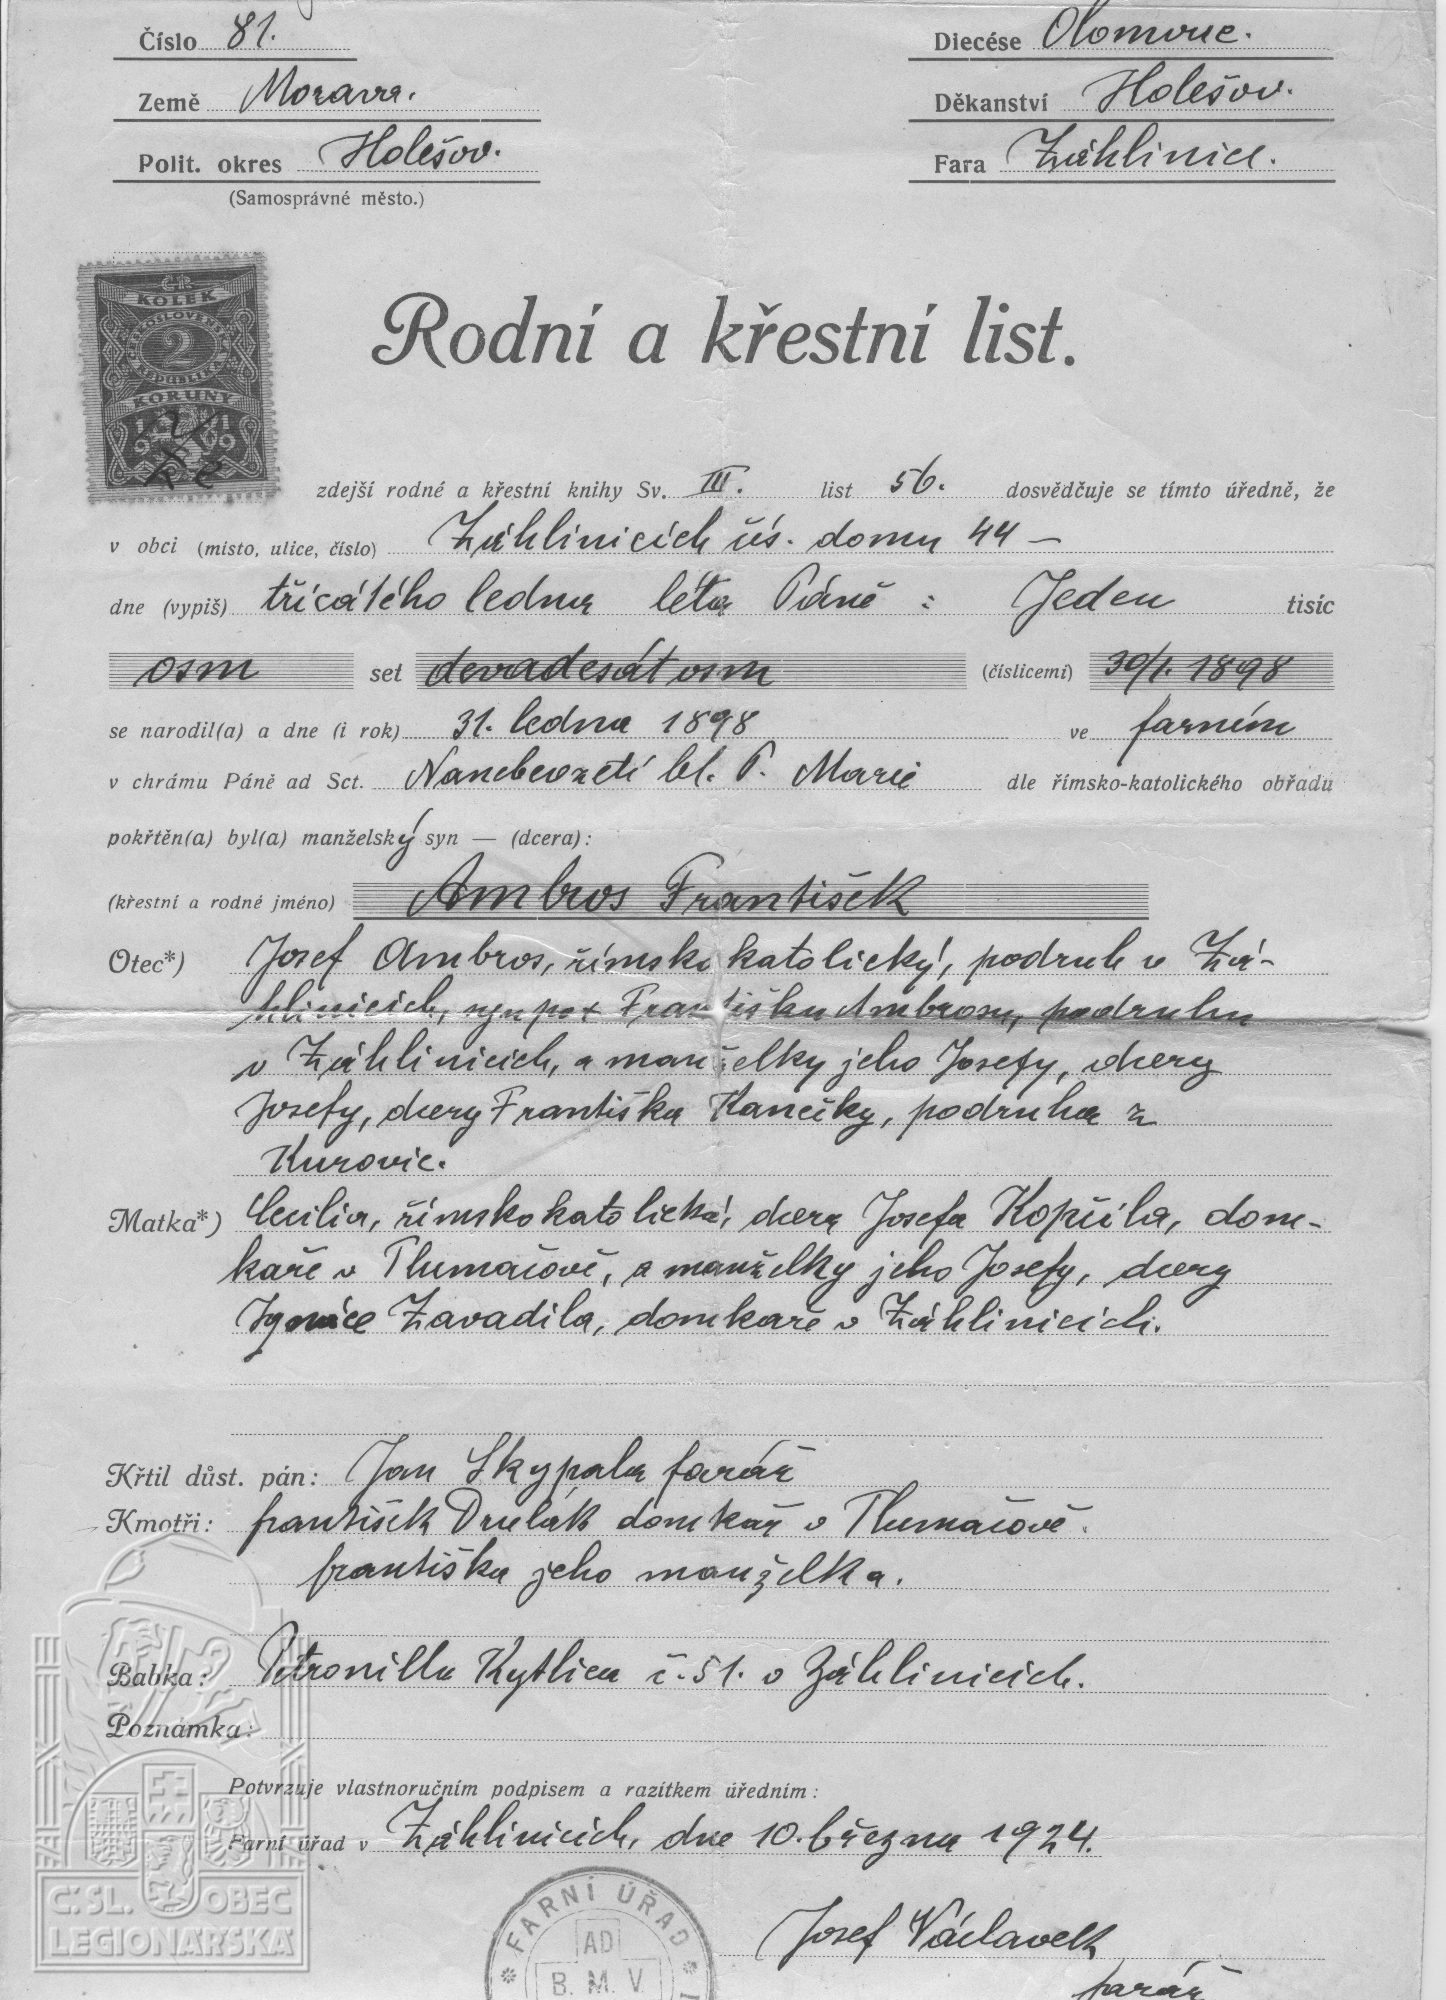 Číslo 81.
Diecése Olomouc.
Země Morava.
Děkanství Holešov.
Polit. okres Holešov.
Fara Záhlinice.
(Samosprávné město.)
ČR
KOLEK
ČESKOSLOVENSKÁ
2
REPUBLIKA
KORUNY
1919
Rodní a křestní list.
zdejší rodné a křestní knihy Sv. III. list 56. dosvědčuje se tímto úředně, že
v obci (místo, ulice, číslo) Záhlinicích čís. domu 44 —
dne (vypiš) třicátého ledna léta Páně : Jeden tisíc
osm set devadesát osm (číslicemi) 30/1. 1898
se narodil(a) a dne (i rok) 31. ledna 1898 ve farním
v chrámu Páně ad Sct. Nanebevzetí bl. P. Marie dle římsko-katolického obřadu
pokřtěn(a) byl(a) manželský syn — (dcera):
(křestní a rodné jméno) Ambros František
Otec*) Josef Ambros, římskokatolický, podruh v Zá-
hlinicích, syn Františka Ambrosa, podruha
v Záhlinicích, a manželky jeho Josefy, dcery
Josefy, dcery Františka Kanečky, podruha z
Kurovic.
Matka*) Cecilia, římskokatolická, dcera Josefa Kopřila, dom-
kaře v Tlumačově, a manželky jeho Josefy, dcery
Ignáce Zavadila, domkaře v Záhlinicích.
Křtil důst. pán: Jan Skypala farář
Kmotři: František Drulák domkář v Tlumačově.
Františka jeho manželka.
Babka: Petronilla Kytlica č. 51. v Záhlinicích.
Poznámka:
Potvrzuje vlastnoručním podpisem a razítkem úředním:
Farní úřad v Záhlinicích, dne 10. března 1924.
FARNÍ ÚŘAD
AD
B. M. V.
Josef Václavek
farář
Č.SL. OBEC
LEGIONÁŘSKÁ